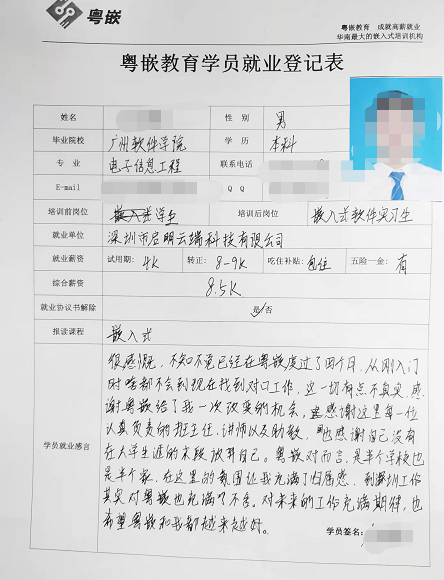 粤嵌
粤嵌教育 成就高薪就业
华南最大的嵌入式培训机构
粤嵌教育学员就业登记表
姓名 性别 男
毕业院校 广州软件学院 学历 本科
专业 电子信息工程 联系电话
E-mail Q Q
培训前岗位 学生 培训后岗位 嵌入式软件实习生
就业单位 深圳市启明云端科技有限公司
就业薪资 试用期: 4K 转正: 8-9K 吃住补贴: 包住 五险一金: 有
综合薪资 8.5K
就业协议书解除 是/否
报读课程 嵌入式
学员就业感言
很感慨,不知不觉已经在粤嵌度过了两个月,从刚入门
时啥都不会到现在找到对口工作,这一切有点不真实,感
谢粤嵌给了我一次改变的机会,感谢这里每一位
认真负责的班主任、讲师以及助教,也感谢自己没有
在大学生涯的末段放弃自己。粤嵌对而言,是半个学校也
是半个家,在这里的氛围让我充满了归属感,到深圳工作
其实对粤嵌也充满了不舍。对未来的工作充满期待,也
希望粤嵌和我都越来越好。
学员签名: